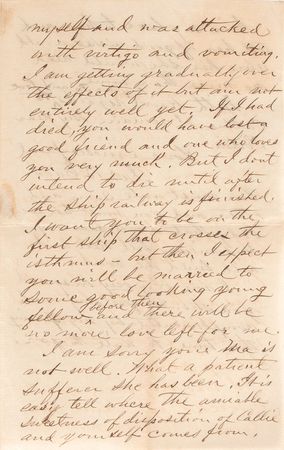 myself and was attacked
with virtigo and vomiting.
I am getting gradually over
the effects of it but am not
entirely well yet. If I had
died, you would have lost a
good friend and one who loves
you very much. But I dont
intend to die until after
the ship railway is finished.
I want you to be on the
first ship that crosses the
isthmus – but then I expect
you will be married to
some good looking young
before then
fellow and there will be
no more love left for me.
I am sorry your Ma is
not well. What a patient
sufferer she has been. It is
easy tell where the amiable
sweetness of disposition of Callie
and yourself comes from.